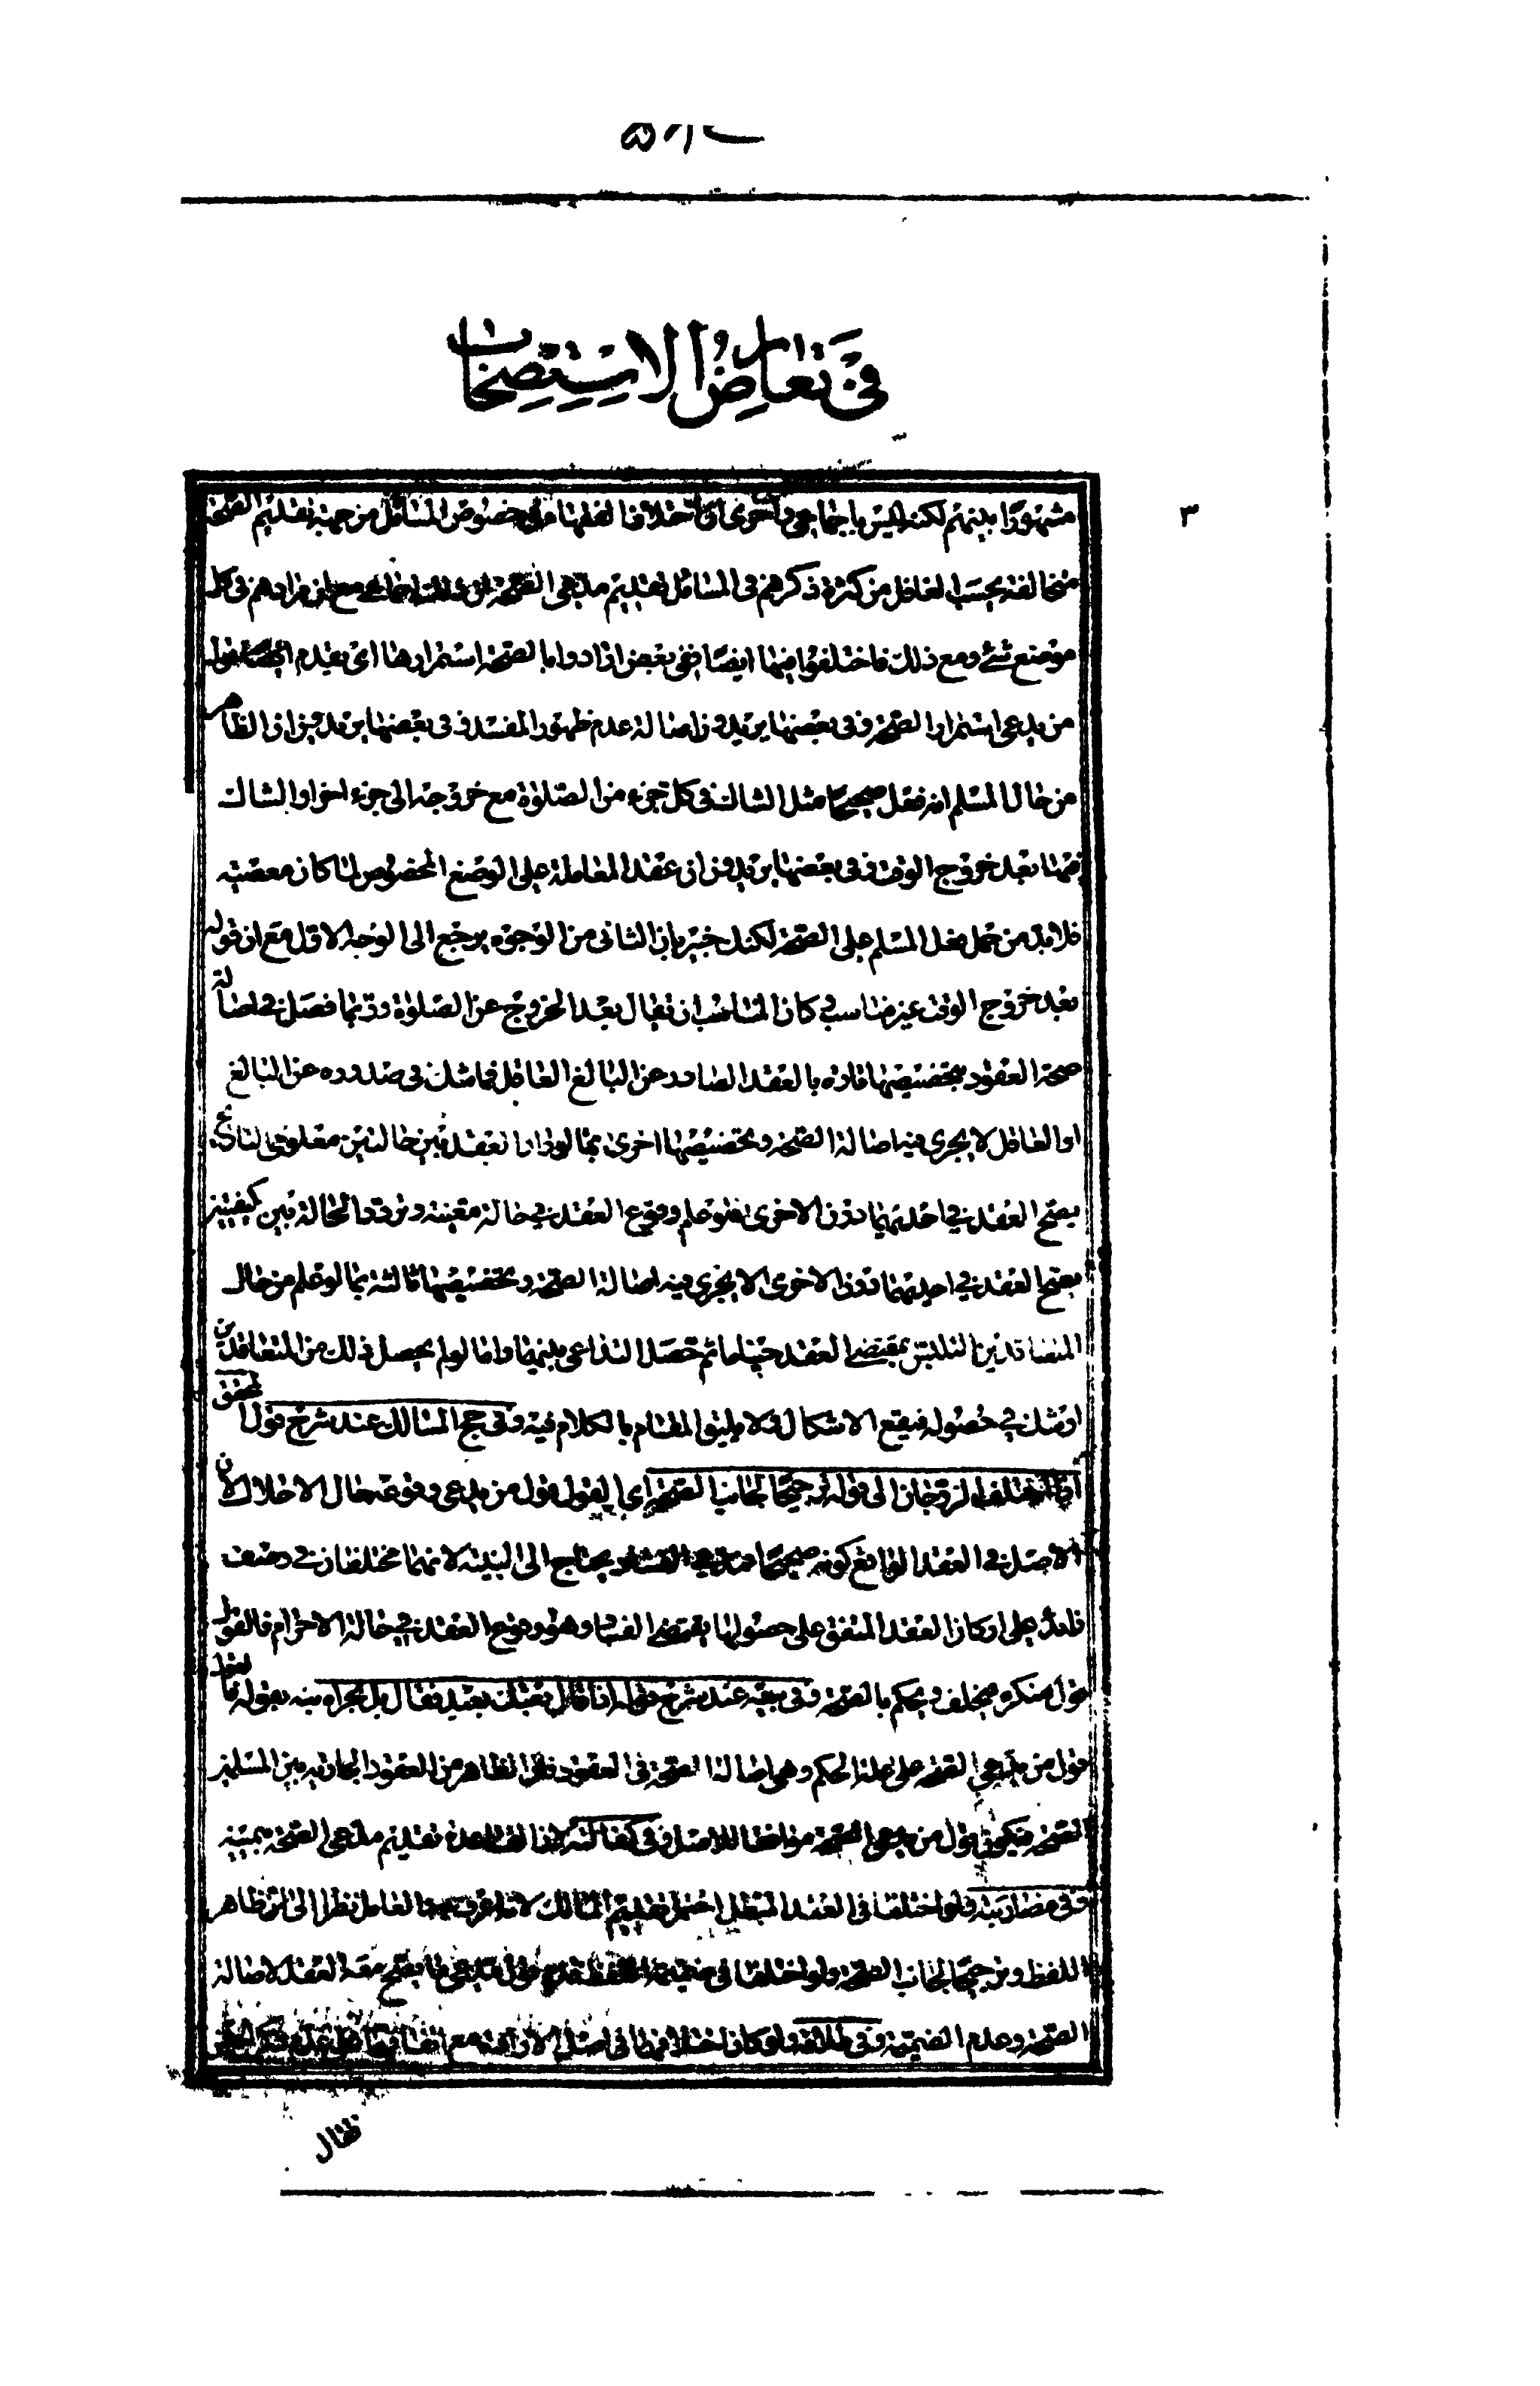 في تعارض الاستصحاب
٣
مشهورا بينهم لكنه ليس باجماعي خصوص المسائل من جهة تقديم الصحة
مخالفة يحسب الغافل من كثرة ذكرهم في المسائل تقديم مدعي الصحة ان ذلك اجماعي مع ان مرادهم في كل
موضع شيء ومع ذلك فاختلفوا فيها ايضا ففي بعض ارادوا بالصحة استمرارها اي يقدم قول
من يدعي استمرار الصحة وفي بعضها يريدون اصالة عدم ظهور المفسد وفي بعضها يريدون ان الظاهر
من حال المسلم انه فعل صحيحا مثل الشاك في كل جزء من الصلوة مع خروجه الى جزء اخر او الشاك
فيها بعد خروج الوقت وفي بعضها يريدون ان عقد المعاملة على الوضع المخصوص لما كان معصية
فلا بد من حمل فعل المسلم على الصحة لكنك خبير بان الثاني من الوجوه يرجع الى الوجه الاول مع ان قوله
بعد خروج الوقت غير مناسب وكان المناسب ان يقال بعد الخروج عن الصلوة وربما فصل في اصالة
صحة العقود بتخصيصها تارة بالعقد الصادر عن البالغ العاقل فما شك في صدوره عن البالغ
او العاقل لا يجري فيه اصالة الصحة وبتخصيصها اخرى بما لو دار العقد بين حالتين معلومتي التاريخ
يصح العقد في احديهما دون الاخرى فلو علم وقوع العقد في حالة معينة وتردد الحالة بين كيفيتين
يصح العقد في احديهما دون الاخرى لا يجري فيه اصالة الصحة وبتخصيصها ثالثة بما لو علم من حال
المتعاقدين التلبس بمقتضي العقد حينا ما ثم حصل التداعي بينهما واما لو لم يحصل ذلك من المتعاقدين
او شك في حصوله فيقع الاشكال ولا يليق المقام بالكلام فيه وفي حج المسالك عند شرح قول المحقق
اذا اختلف الزوجان الى قوله ترجيحا لجانب الصحة اي القول قول من يدعي وقوعه حال الاحلال لان
الاصل في العقد الواقع كونه صحيحا فمدعي الفساد يحتاج الى البينة لانهما مختلفان في وصف
زائد على اركان العقد المتفق على حصولها يقتضي الفساد وهو وقوع العقد في حالة الاحرام فالقول
قول منكره فيحلف ويحكم بالصحة وفي بيعه عند شرح قوله اذا قال بعتك بعبد فقال بل بحر اه نبه بقوله فالقول
قول من يدعي الصحة على علة الحكم وهي اصالة الصحة في العقود فان الظاهر من العقود الجارية بين المسلمين
الصحة فيكون قول من يدعي الصحة موافقا للاصل وفي كفالته تقديم مدعي الصحة بيمينه
وفي مضاربته ولو اختلفا في العقد المبطل احتمل تقديم المالك العامل نظرا الى ظاهر
اللفظ وترجيحا لجانب الصحة ولو اختلفا في قول مدعي ما يصح معه العقد لاصالة
الصحة وعدم الضميمة وفي طلاقه ولو كان اختلافهما في اصل الارادة مع اتفاقهما على عدم
فقال